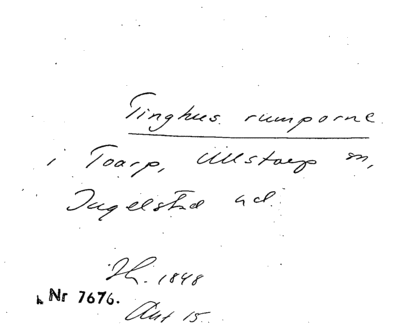 Tinghus rumporne
i Toarp, Ullstorp sn,
Ingelstad hd.
Th. 1848
Nr 7676.
Ant 15